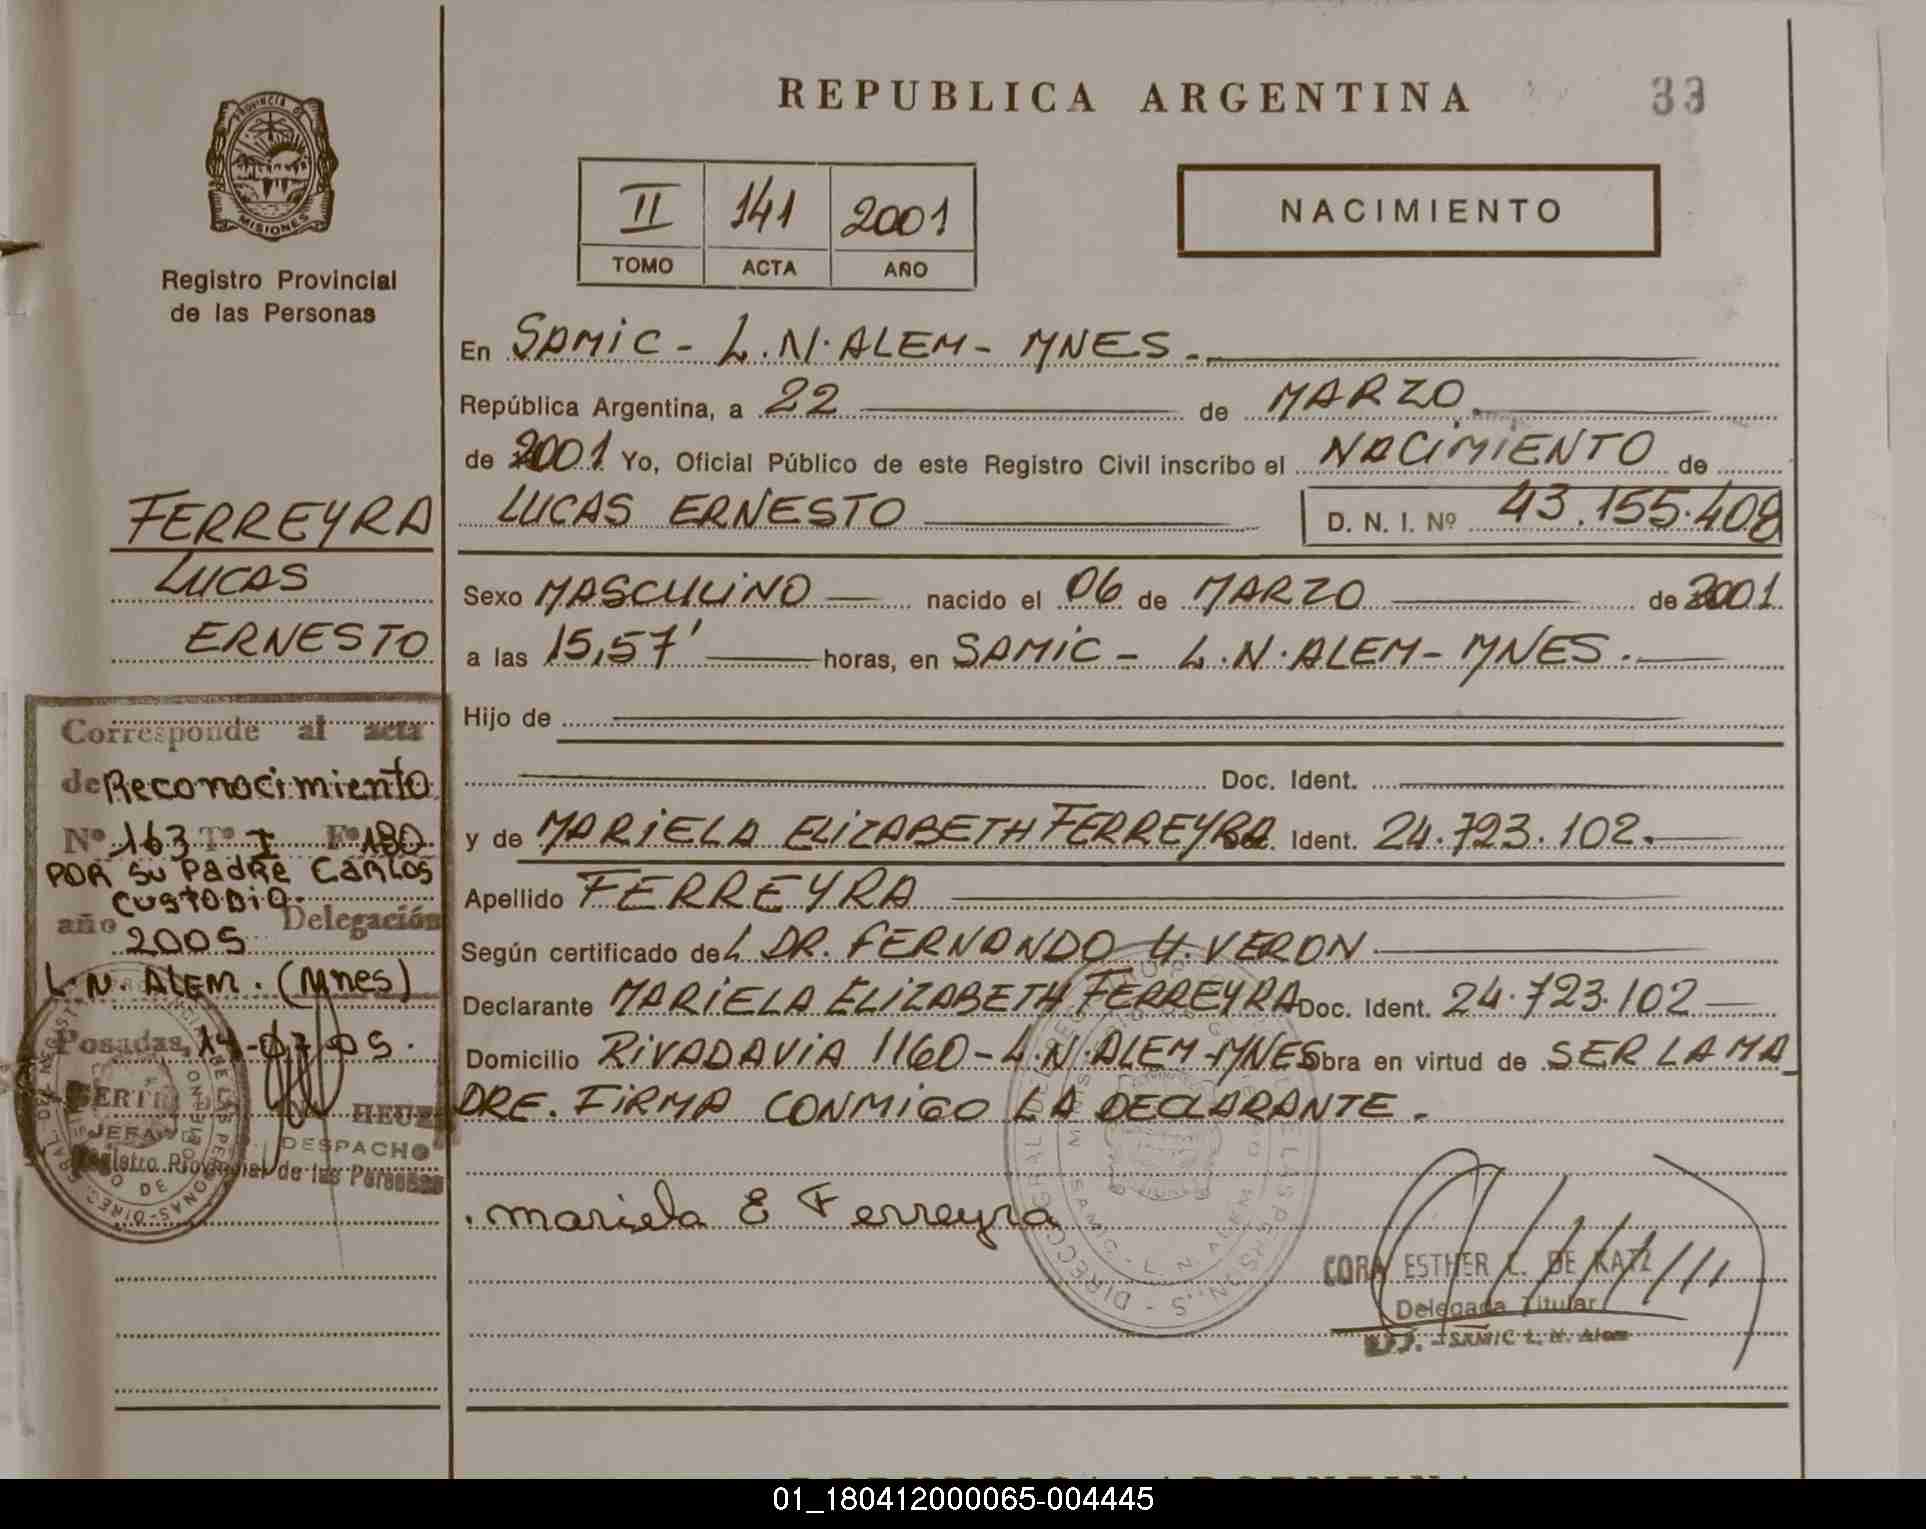 REPUBLICA ARGENTINA
33
PROVINCIA DE
MISIONES
Registro Provincial
de las Personas
II 141 2001
TOMO ACTA AÑO
NACIMIENTO
En SAMIC - L.N. ALEM - MNES -
República Argentina, a 22 de MARZO
de 2001 Yo, Oficial Público de este Registro Civil inscribo el NACIMIENTO de
LUCAS ERNESTO D. N. I. Nº 43.155.408
Sexo MASCULINO nacido el 06 de MARZO de 2001
a las 15,57' horas, en SAMIC - L.N. ALEM - MNES.
Hijo de
Doc. Ident.
y de MARIELA ELIZABETH FERREYRA Ident. 24.723.102.
Apellido FERREYRA
Según certificado del DR. FERNANDO H. VERON
Declarante MARIELA ELIZABETH FERREYRA Doc. Ident. 24.723.102
Domicilio RIVADAVIA 1160 - L.N. ALEM - MNES Obra en virtud de SER LA MA
DRE. FIRMA CONMIGO LA DECLARANTE.
Mariela E Ferreyra
CORA ESTHER C. DE KATZ
Delegada Titular
SAMIC L. N. Alem
FERREYRA
LUCAS
ERNESTO
Corresponde al acta
de Reconocimiento
Nº 163 Tº I Fº 180
POR SU PADRE CARLOS
CUSTODIO.
año 2005 Delegación
L.N. ALEM. (Mnes)
Posadas, 14-07-05.
JEFA
DESPACHO
Registro Provincial de las Personas
01_180412000065-004445